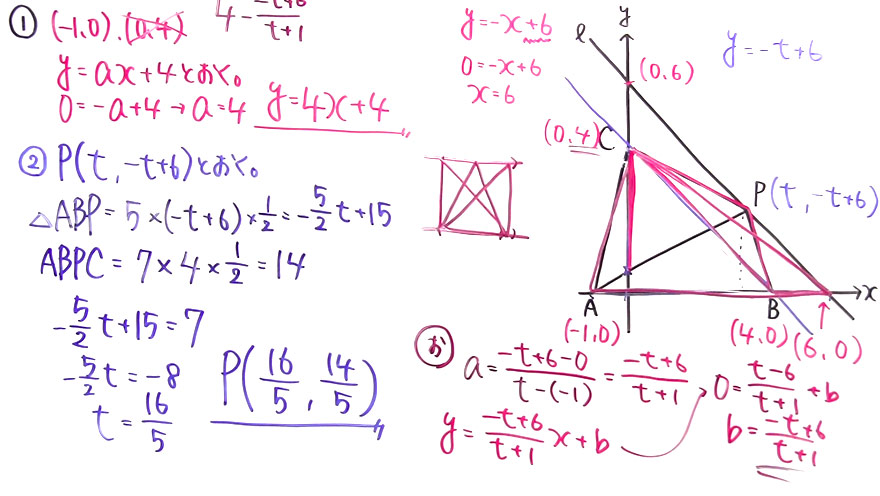 ① (-1,0). (0,4)
4 - \frac{-t+6}{t+1}
y=ax+4とおく。
0=-a+4→a=4 y=4x+4
② P(t, -t+6)とおく。
△ABP=5×(-t+6)×\frac{1}{2}=-\frac{5}{2}t+15
ABPC=7×4×\frac{1}{2}=14
-\frac{5}{2}t+15=7
-\frac{5}{2}t=-8
t=\frac{16}{5}
P(\frac{16}{5}, \frac{14}{5})
y=-x+6
0=-x+6
x=6
ℓ
y
y=-t+6
(0,6)
(0,4)C
P(t, -t+6)
A
B
x
(-1,0)
(4,0)(6,0)
お
a=\frac{-t+6-0}{t-(-1)}=\frac{-t+6}{t+1}
y=\frac{-t+6}{t+1}x+b
0=\frac{t-6}{t+1}+b
b=\frac{-t+6}{t+1}